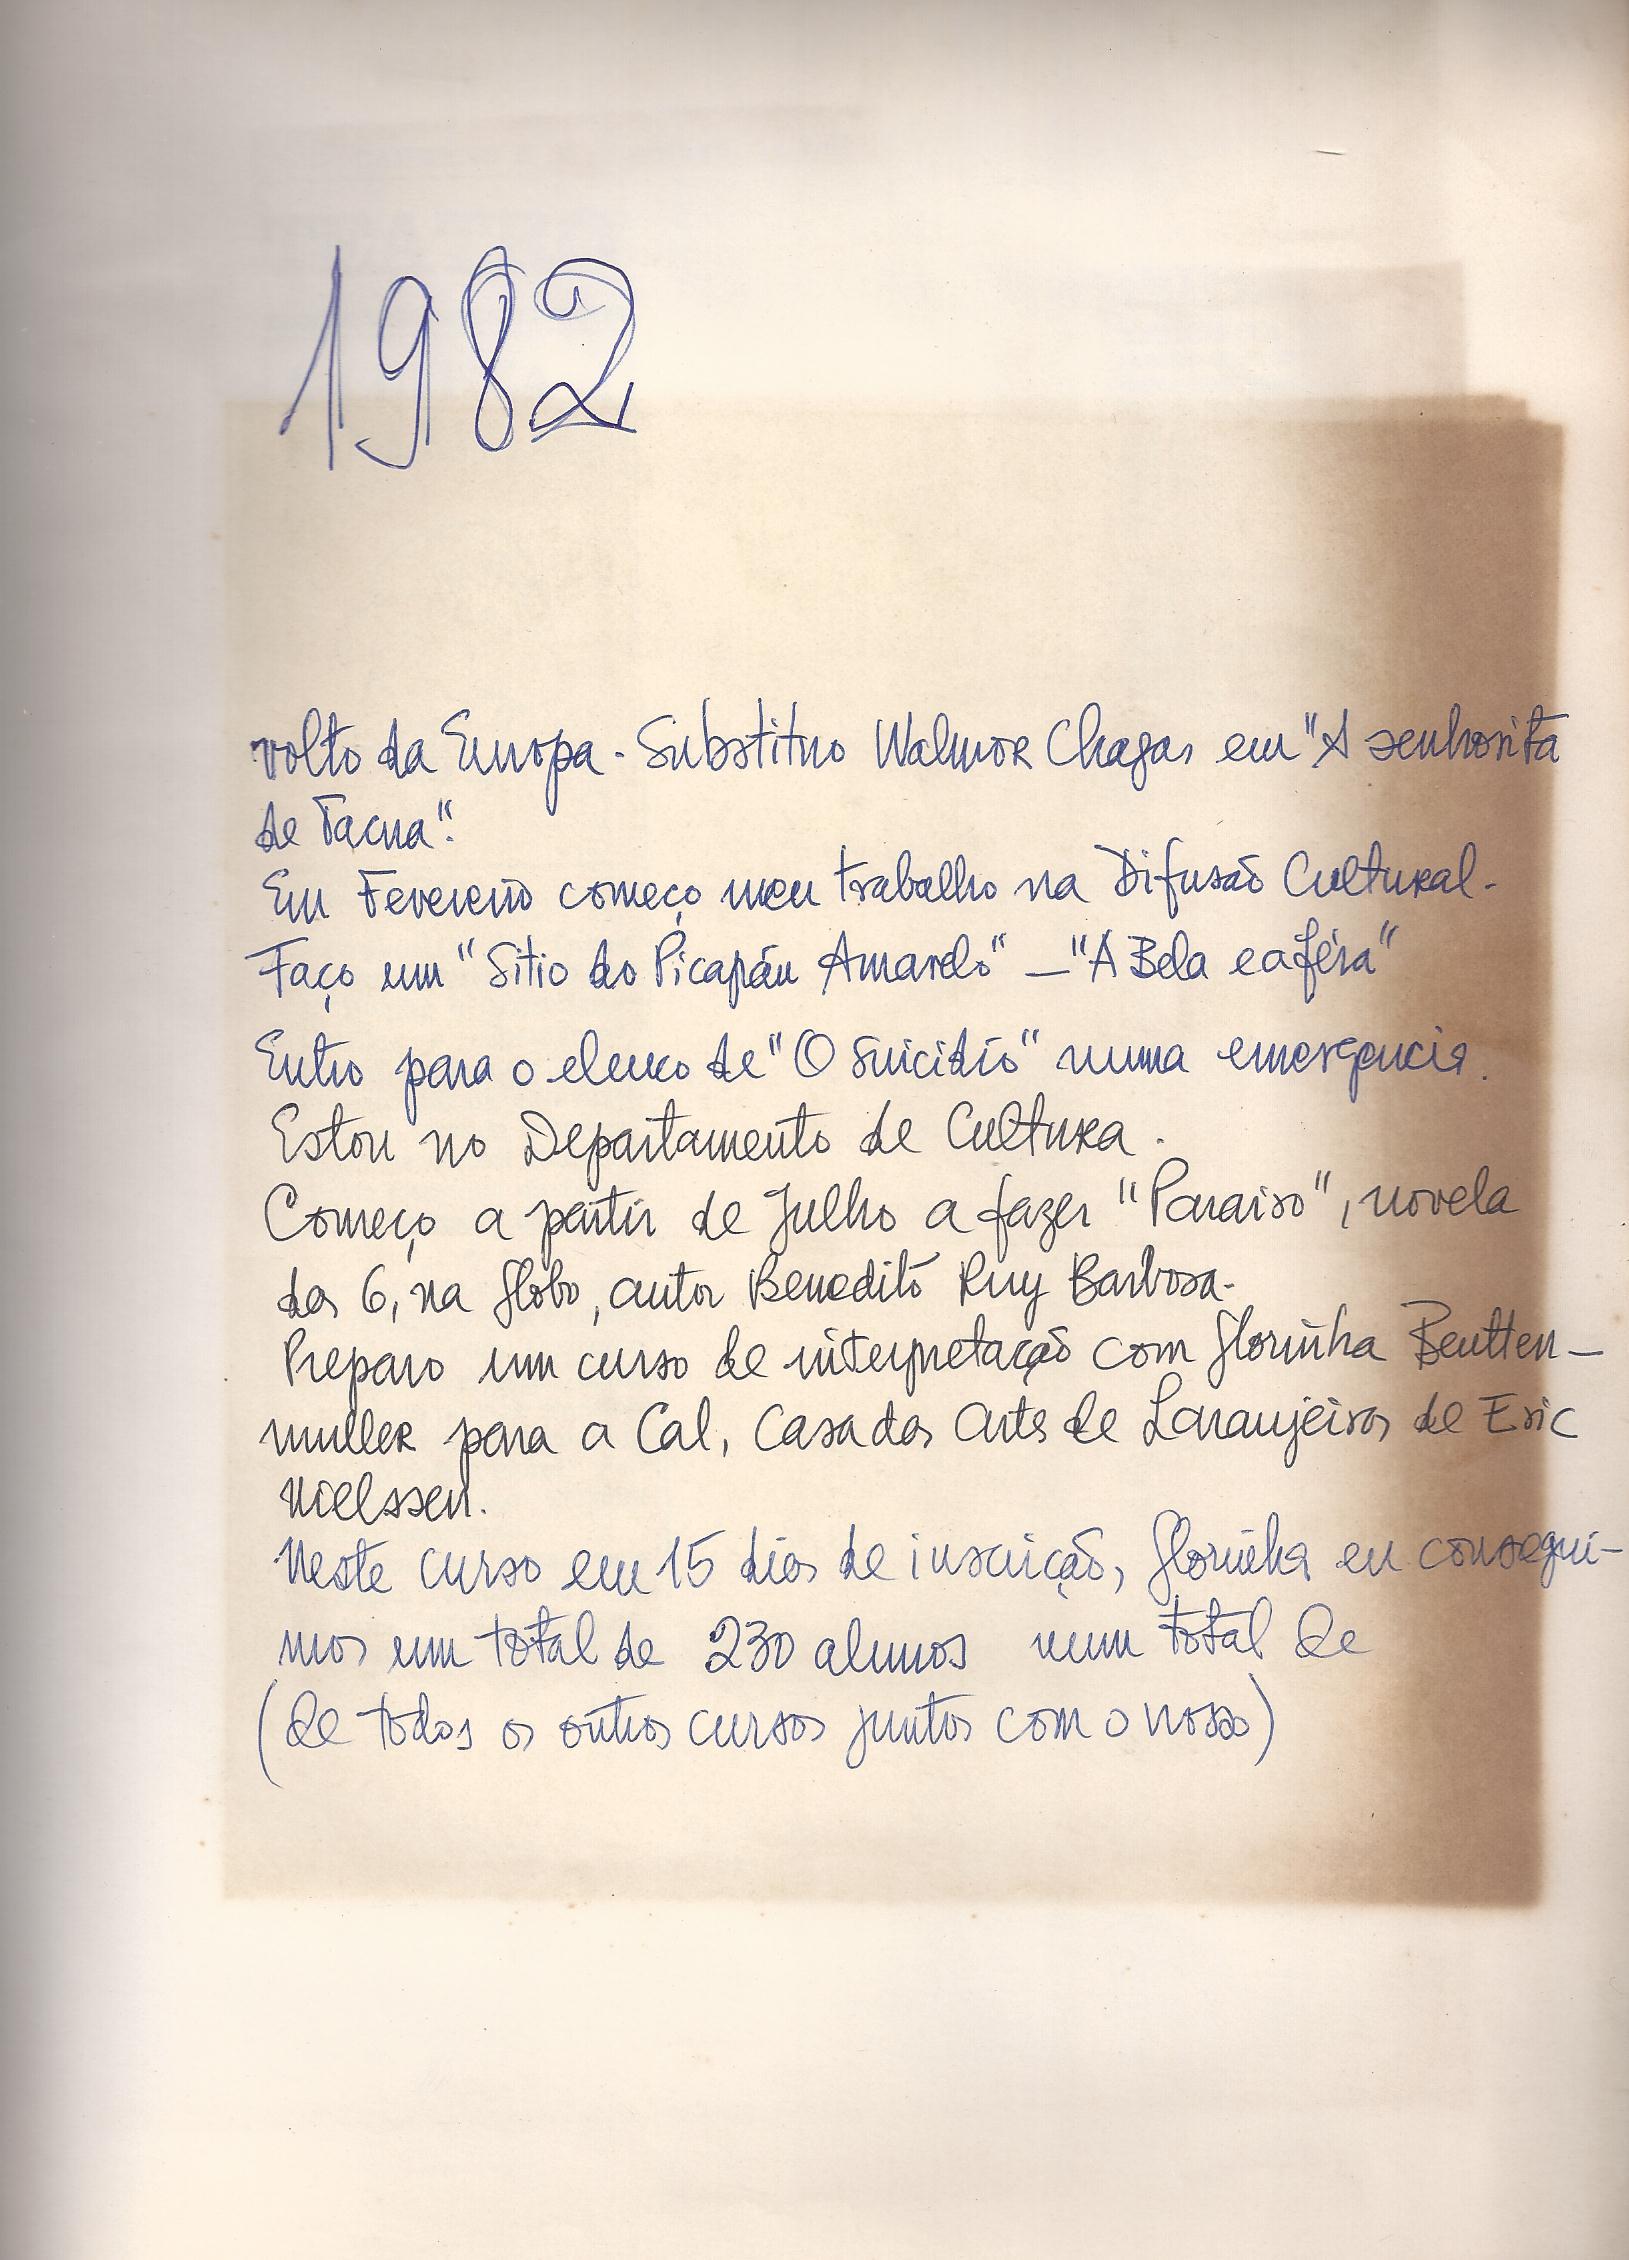 1982
volto da Europa - Substituo Walmor Chagas em "A senhorita
de Tacna".
Em Fevereiro começo meu trabalho na Difusão Cultural -
Faço um "Sitio do Picapáu Amarelo" - "A Bela e a féra"
Entro para o elenco de "O Suicidio" numa emergencia.
Estou no Departamento de Cultura.
Começo a partir de Julho a fazer "Paraiso", novela
das 6, na Globo, autor Benedito Ruy Barbosa-
Preparo um curso de interpretação com Glorinha Beutten-
muller para a Cal, Casa das Artes de Laranjeiras de Eric
Nielssen.
Neste curso em 15 dias de inscrição, Glorinha eu consegui-
mos um total de 230 alunos num total de
(de todos os outros cursos juntos com o nosso)